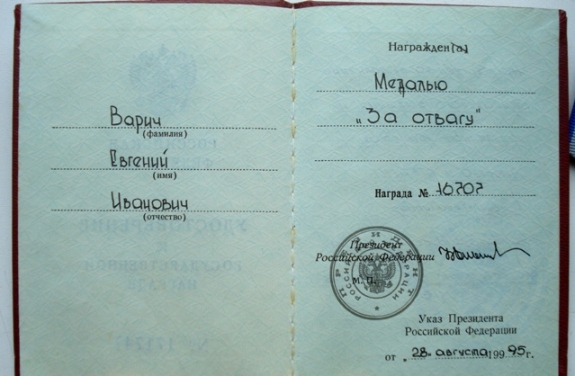 Варич
(фамилия)
Евгений
(имя)
Иванович
(отчество)
Награжден(а)
Медалью
„За отвагу“
Награда № 16707
Президент
Российской Федерации
М. П.
Указ Президента
Российской Федерации
от „28“ августа 1995 г.